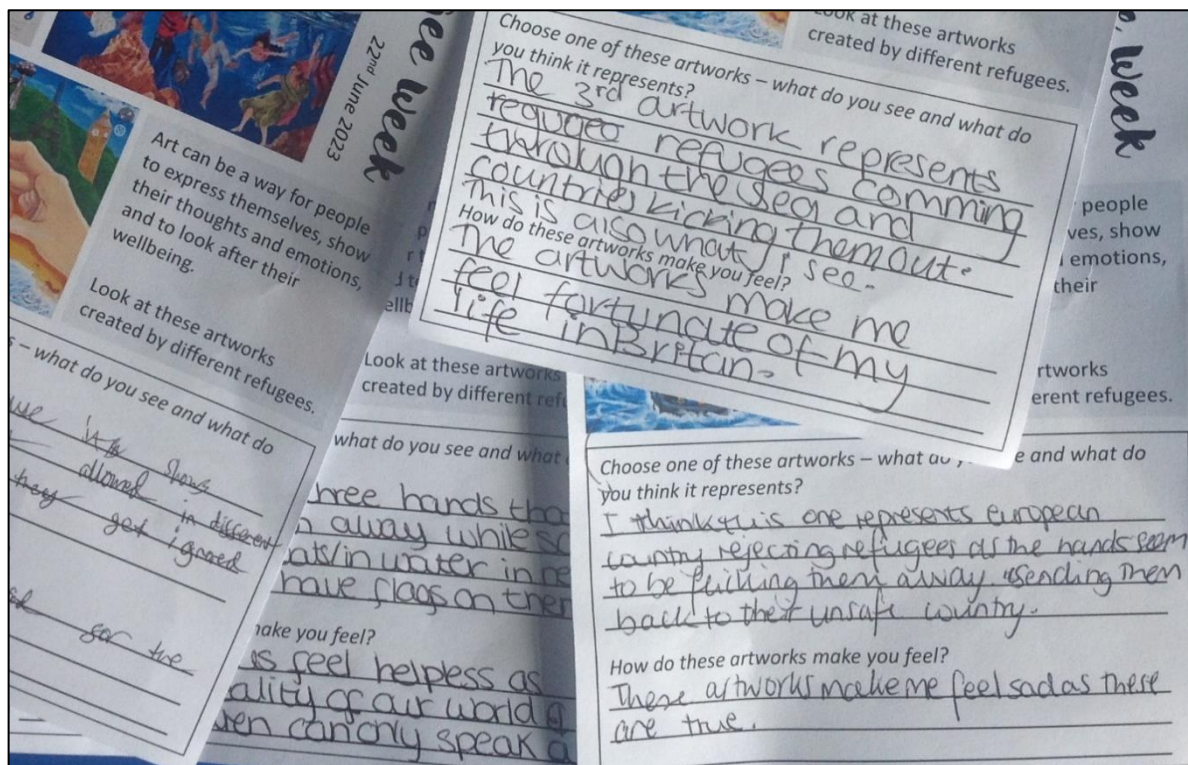 ee Week
22nd June 2023
Art can be a way for people
to express themselves, show
their thoughts and emotions,
and to look after their
wellbeing.
Look at these artworks
created by different refugees.
– what do you see and what do
shows
allowed in different
they get ignored
for the
Look at these artworks
created by different
what do you see and what
hree hands
away while
in water in
have flags on
make you feel?
feel helpless as
ality of our world
can only speak
look at these artworks
created by different refugees.
Choose one of these artworks – what do you see and what do
you think it represents?
The 3rd artwork represents
refugees comming
through the sea and
countries kicking them out.
This is also what I see.
How do these artworks make you feel?
The artworks make me
feel fortunate of my
life in Britan.
Week
people
ves, show
emotions,
their
rtworks
erent refugees.
Choose one of these artworks – what do e and what do
you think it represents?
I think this one represents european
country rejecting refugees as the hands seem
to be flicking them away sending them
back to their unsafe country.
How do these artworks make you feel?
These artworks make me feel sad as these
are true.